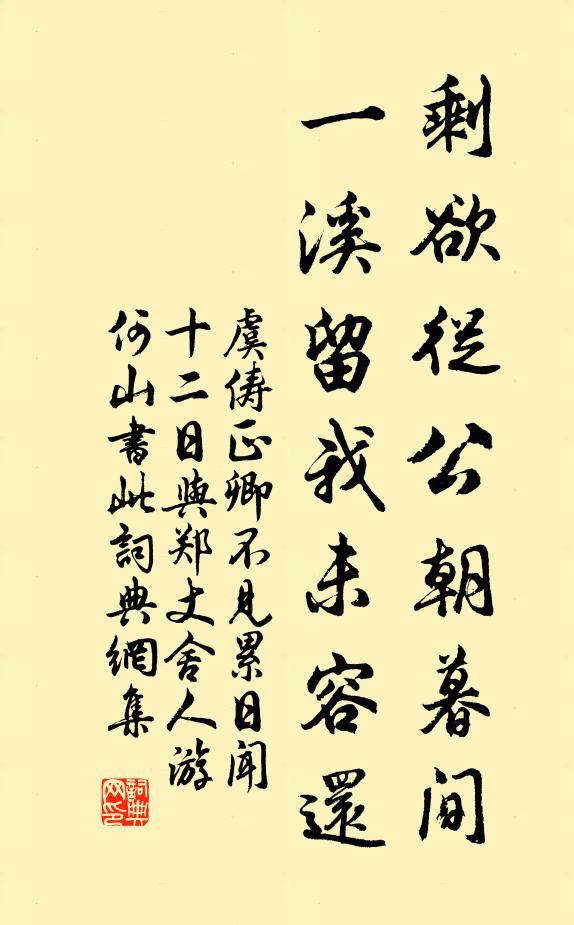 剩欲從公朝暮間
一溪留我未容還
虞儔正卿不見累日聞
十二日與郑丈舍人游
何山書此詞典網集
詞典
网印